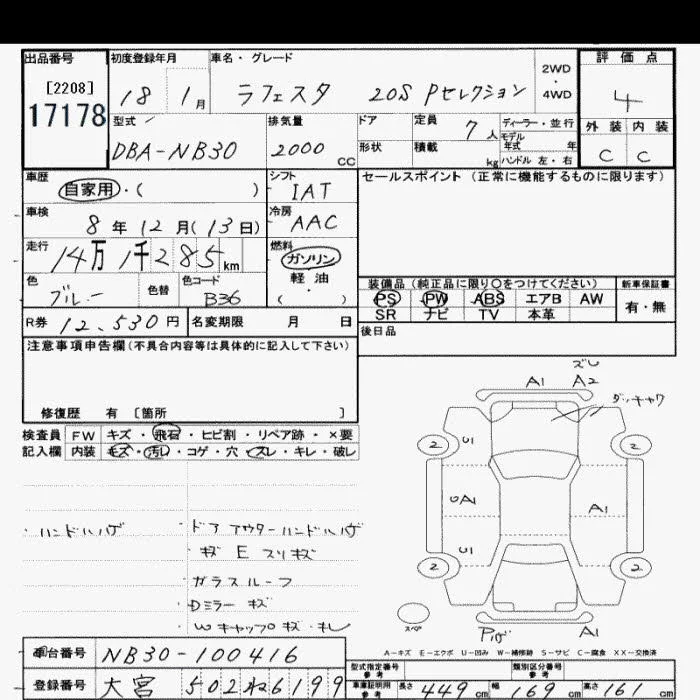 出品番号 初度登録年月 車名・グレード 評価点
[2208] 2WD
18 1月 ラフェスタ 20S Pセレクション ・
17178 4WD 4
型式 排気量 ドア 定員 7人 ディーラー・並行 外装 内装
モデル 年式 年
DBA-NB30 2000 CC 形状 積載 kg ハンドル 左・右 C C
車歴 シフト セールスポイント (正常に機能するものに限ります)
自家用・( ) IAT
車検 冷房
8年12月(13日) AAC
走行 燃料
14万1千285km ガソリン
色 色替 色コード ・軽油 装備品 (純正品に限り○をつけてください) 新車保証書
ブルー B36 ( ) PS PW ABS エアB AW 有・無
R券 12,530円 名変期限 月 日 SR ナビ TV 本革
後日品
注意事項申告欄(不具合内容等は具体的に記入して下さい)
修復歴 有 [箇所 ]
検査員 FW キズ・飛石・ヒビ割・リペア跡・×要
記入欄 内装 キズ・汚レ・コゲ・穴・スレ・キレ・破レ
ズレ
A1 A2
ダッキャワ
2 U1 2
UA1 A1
U1
2 2
スペア
Pハゲ A1
・ハンドルハゲ ・ドアアウターハンドルハゲ
・キズ E スリキズ
・ガラスルーフ
・Dミラーキズ
・Wキャップキズ・キレ
A―キズ E―エクボ U―凹み W―補修跡 S―サビ C―腐食 XX―交換済
車台番号 NB30-100416
型式指定番号 類別区分番号
登録番号 大宮 502ね6199
車庫証明用参考 長さ 449cm 幅 169cm 高さ 161cm